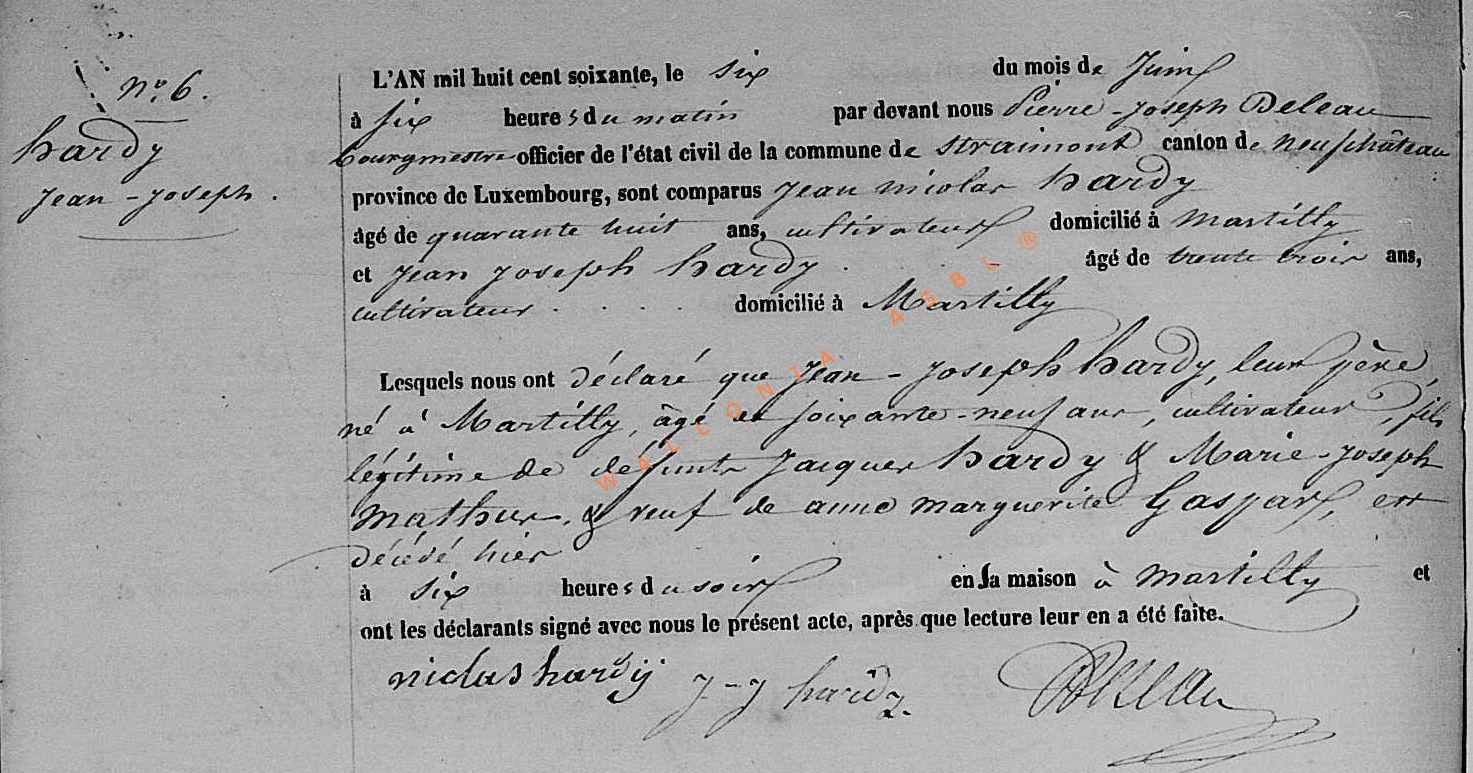 n°. 6.
hardy
Jean-Joseph.
L'AN mil huit cent soixante, le six du mois de Juin
à six heures du matin par devant nous Pierre-Joseph Deleau
bourgmestre officier de l'état civil de la commune de Straimont canton de neufchâteau
province de Luxembourg, sont comparus Jean nicolas hardy
âgé de quarante huit ans, cultivateur domicilié à Martilly
et Jean Joseph hardy . . . âgé de trente trois ans,
cultivateur . . . . domicilié à Martilly
Lesquels nous ont déclaré que Jean-Joseph hardy, leur père,
né à Martilly, âgé de soixante-neuf ans, cultivateur, fils
légitime de défunts Jacques hardy & Marie-Joseph
Mathus, & veuf de anne marguerite Gaspar, est
décédé hier
à six heures du soir en sa maison à Martilly et
ont les déclarants signé avec nous le présent acte, après que lecture leur en a été faite.
niclas hardij J-J hardy. Deleau
WALLONIA ASBL ®